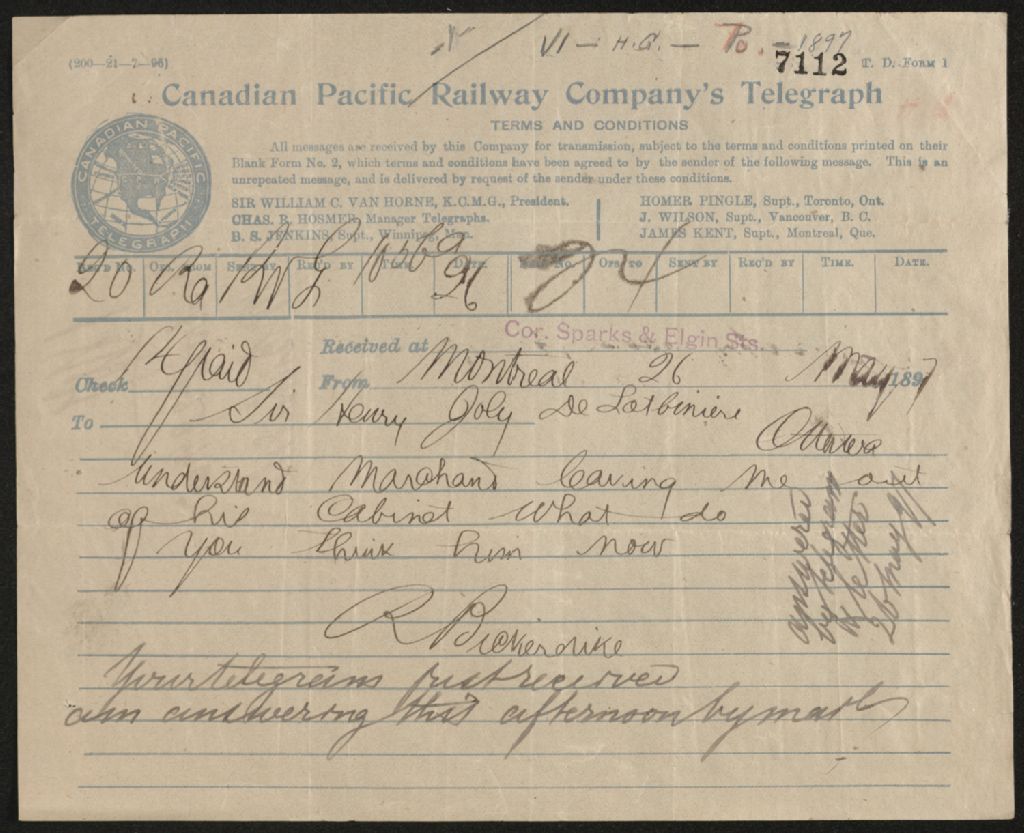 VI — H.G. — Po. — 1897
(200—21—7—96)
7112 T. D. Form 1
Canadian Pacific Railway Company's Telegraph
TERMS AND CONDITIONS
All messages are received by this Company for transmission, subject to the terms and conditions printed on their
Blank Form No. 2, which terms and conditions have been agreed to by the sender of the following message. This is an
unrepeated message, and is delivered by request of the sender under these conditions.
CANADIAN PACIFIC
TELEGRAPH
SIR WILLIAM C. VAN HORNE, K.C.M.G., President.
CHAS. R. HOSMER, Manager Telegraphs.
B. S. JENKINS, Supt., Winnipeg, Man.
HOMER PINGLE, Supt., Toronto, Ont.
J. WILSON, Supt., Vancouver, B. C.
JAMES KENT, Supt., Montreal, Que.
Rec'd No. Ofs. from Sent by Rec'd by Time. Date. No. Ofs to Sent by Rec'd by Time. Date.
20 Ra
Cor. Sparks & Elgin Sts.
Received at
Check 14 paid From Montreal 26 May 1897
To Sir Henry Joly De Lotbiniere
Ottawa
Understand Marchand leaving me out
of his Cabinet what do
you think him now
R Bickerdike
Your telegram just received
am answering this afternoon by mail
answered
by telegram
& letter
26 May 97